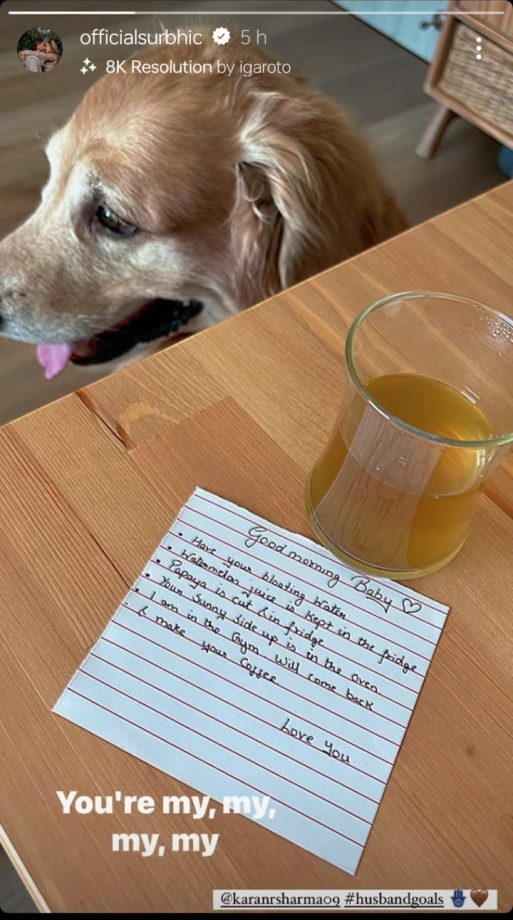 officialsurbhic 5 h
8K Resolution by igaroto
Good morning Baby
• Have your bloating water
• Watermelon juice is kept in the fridge
• Papaya is cut & in fridge
• Your Sunny side up is in the oven
• I am in the Gym will come back
& make your Coffee
Love You
You're my, my,
my, my
@karanrsharma09 #husbandgoals